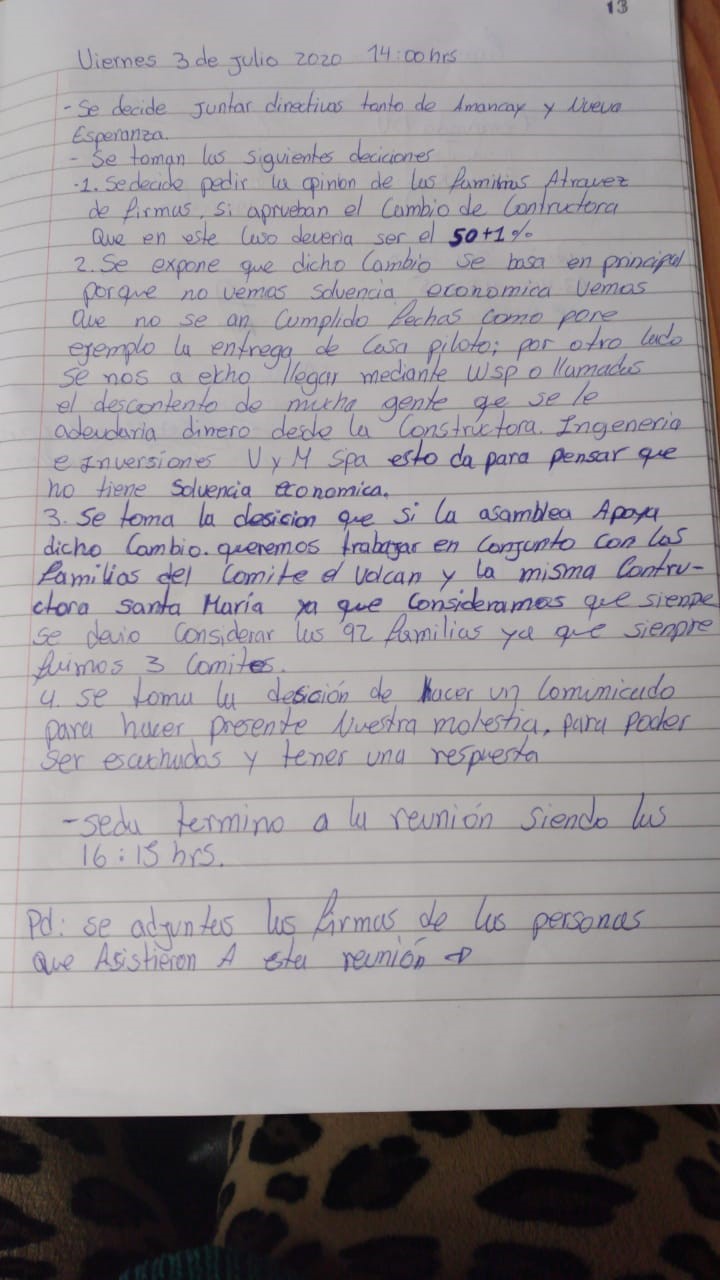 13
Viernes 3 de julio 2020 14:00 hrs
- Se decide Juntar directivas tanto de Amancay y Nueva
Esperanza.
- Se toman las siguientes deciciones
-1. Se decide pedir la opinion de las familias Atravez
de firmas, si aprueban el Cambio de Contructora
Que en este Caso deveria ser el 50+1%
2. Se expone que dicho Cambio se basa en principal
porque no vemos solvencia economica Vemos
Que no se an Cumplido fechas como pore
ejemplo la entrega de Casa piloto; por otro lado
se nos a ekho llegar mediante Wsp o llamadas
el descontento de mucha gente qe se le
adeudaria dinero desde la Constructora. Ingeneria
e Inversiones V y M Spa esto da para pensar que
no tiene Solvencia economica.
3. Se toma la desicion que si la asamblea Apoya
dicho Cambio. queremos trabajar en Conjunto con las
familias del Comite el Volcan y la misma Contru-
ctora Santa María ya que Consideramos que sienpe
se devio Considerar las 92 familias ya que sienpre
fuimos 3 Comites.
4. se toma la desición de hacer un Comunicado
para hacer presente Nuestra molestia, para poder
Ser escuchados y tener una respuesta
- seda termino a la reunión Siendo las
16:15 hrs.
Pd: se adjuntas las firmas de las personas
que Asistieron A esta reunión